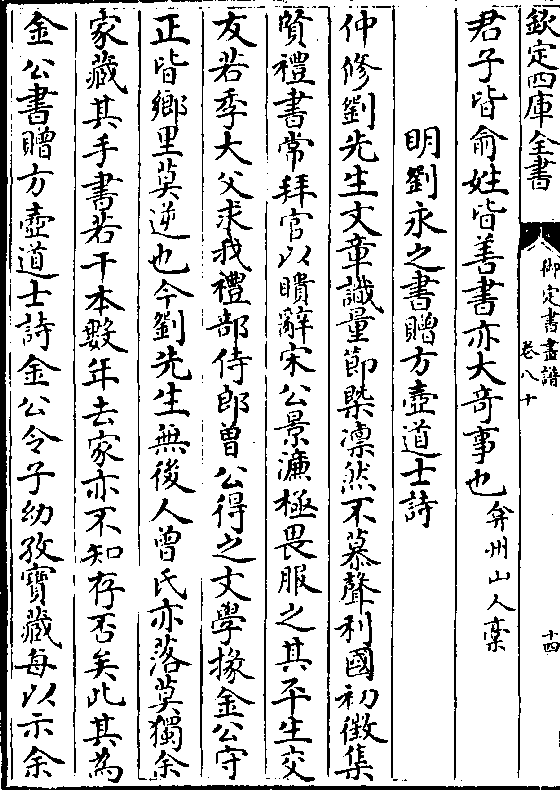 欽定四庫全書
御定書畫譜
卷八十
十四
君子皆俞姓皆善書亦大奇事也 弇州山人稾
明劉永之書贈方壺道士詩
仲修劉先生文章識量節槩凛然不慕聲利國初徴集
賢禮書常拜官以瞶辭宋公景濂極畏服之其平生交
友若季大父求我禮部侍郎曽公得之文學掾金公守
正皆鄉里莫逆也今劉先生無後人曽氏亦落莫獨余
家藏其手書若干本數年去家亦不知存否矣此其為
金公書贈方壺道士詩金公令子幼孜寶藏每以示余